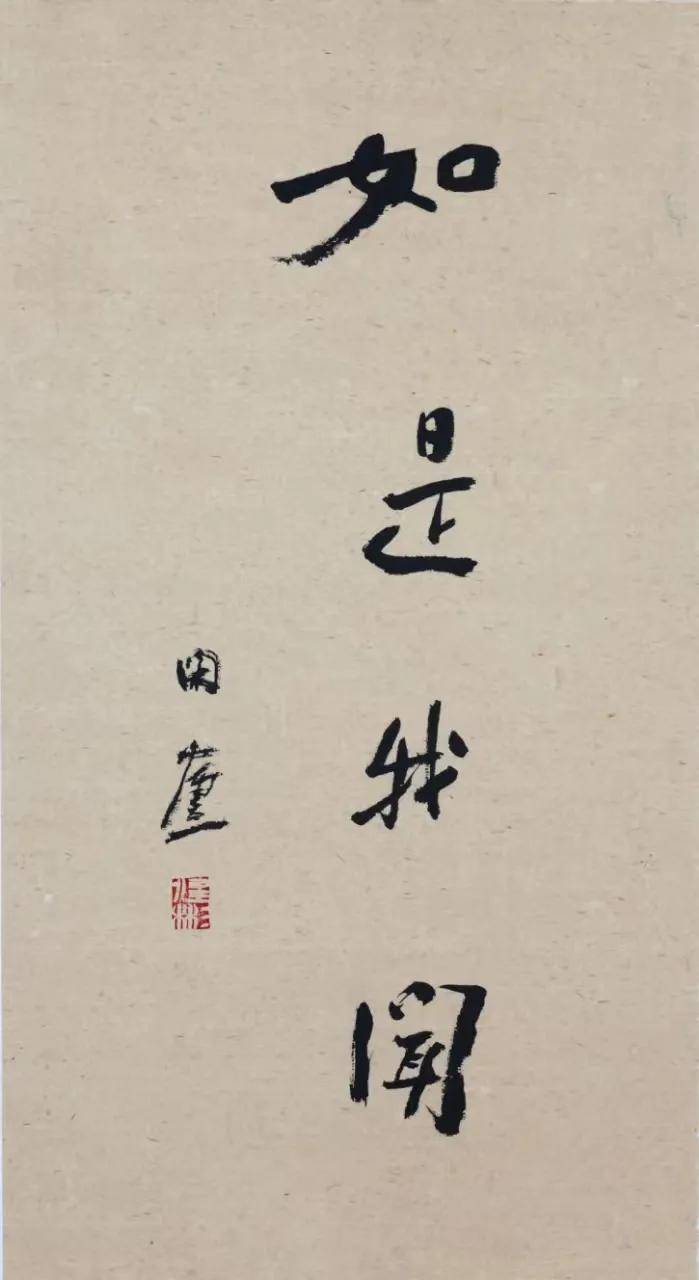 如是我聞
閑廬